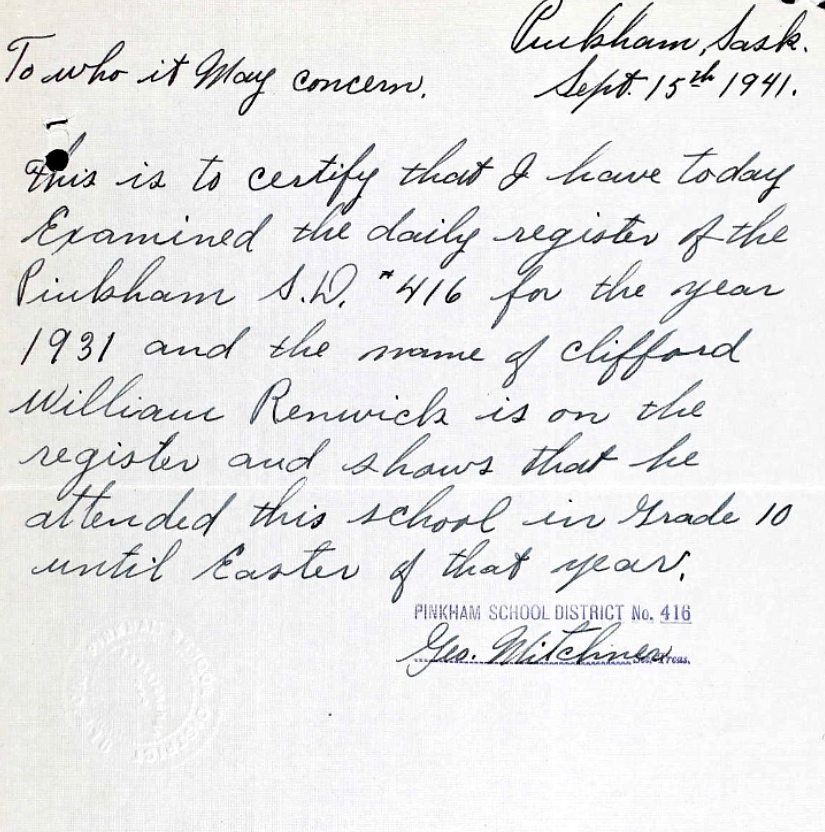 Pinkham, Sask.
To who it May concern.
Sept. 15th 1941.
This is to certify that I have today
Examined the daily register of the
Pinkham S.D. #416 for the year
1931 and the name of Clifford
William Renwick is on the
register and shows that he
attended this school in Grade 10
until Easter of that year.
PINKHAM SCHOOL DISTRICT No. 416
Geo. Mitchner Sec. Treas.
PINKHAM SCHOOL DISTRICT